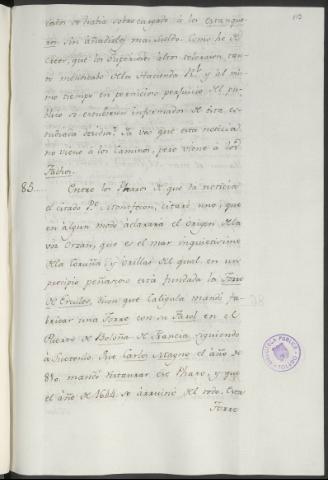 113
cados se havia sobrecargado à los estanque-
ros sin añadirles mas sueldo. Como he de
creer, que los Superiores altos toleraron tan-
to de la Hacienda Rl. y al mis-
mo tiempo en pernicioso perjuicio del pu-
blico si estubieran informados de esta es-
tudiada desidia? Ya veo que esta noticia
no viene à los Caminos, pero viene à los
Fachos.
85. Entre los Pharos de que da noticia
el citado Pe. Montfocon, citaré uno, que
en algun modo aclarará el origen de la
voz Orzán, que es el mar inquietisimo
de la Coruña, y orillas del qual en un
precipicio peñascoso está fundada la Torre
de Ercules. Dicen que Caligula mandó fa-
bricar una Torre con su Farol en el
Puerto de Boloña de Francia, siguiendo
à Suetonio. Que Carlo Magno el año de
810. mandó restaurar ese Pharo, y que
el año de 1644. se arruinó del todo. Esta
Torre
BIBLIOTECA PUBLICA
TOLEDO